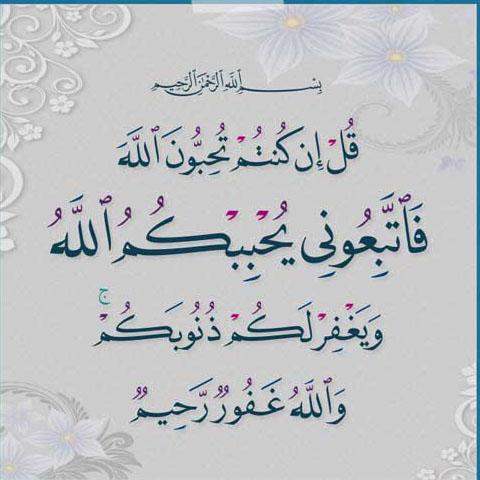 بِسْمِ ٱللَّهِ ٱلرَّحْمَٰنِ ٱلرَّحِيمِ
قُلْ إِن كُنتُمْ تُحِبُّونَ ٱللَّهَ
فَٱتَّبِعُونِى يُحْبِبْكُمُ ٱللَّهُ
وَيَغْفِرْ لَكُمْ ذُنُوبَكُمْ ۚ
وَٱللَّهُ غَفُورٌ رَّحِيمٌ